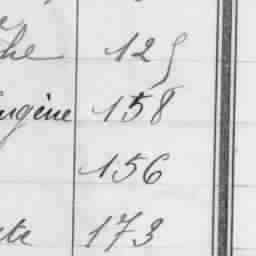 he 125
ugène 158
156
te 173